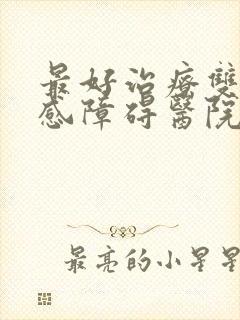 最好治疗雙
感障碍醫院
最亮的小星星